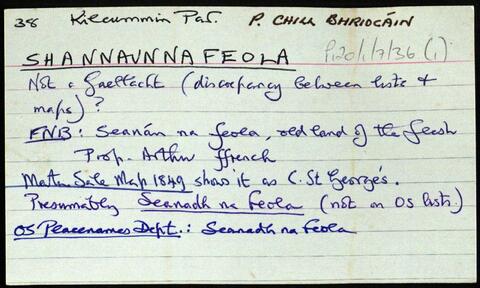 38 Kilcummin Par. P. CHILL BHRIOCÁIN
SHANNAUNNAFEOLA P120/1/7/36 (1)
Not a Gaeltacht (discrepancy between lists &
maps)?
FNB: Seanán na feola, old land of the flesh
Prop. Arthur ffrench
Martin Sale Map 1849 shows it as C. St George's.
Presumably Seanadh na Feola (not on OS lists.)
OS Placenames Dept.: Seanadh na Feola